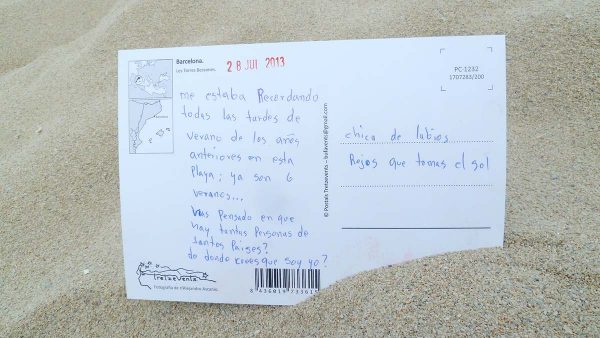 Barcelona.
Les Torres Bessones.
28 JUL 2013
me estaba Recordando
todas las tardes de
verano de los años
anteriores en esta
Playa; ya son 6
veranos...
has Pensado en que
hay tantas Personas de
tantos Paises?
de donde crees que soy yo?
tretzevents
Fotografia de n'Alejandro Ascanio.
8 436019 733615
© Postals Tretzevents – bullavents@gmail.com
PC-1232
1707283/200
chica de labios
Rojos que tomas el sol